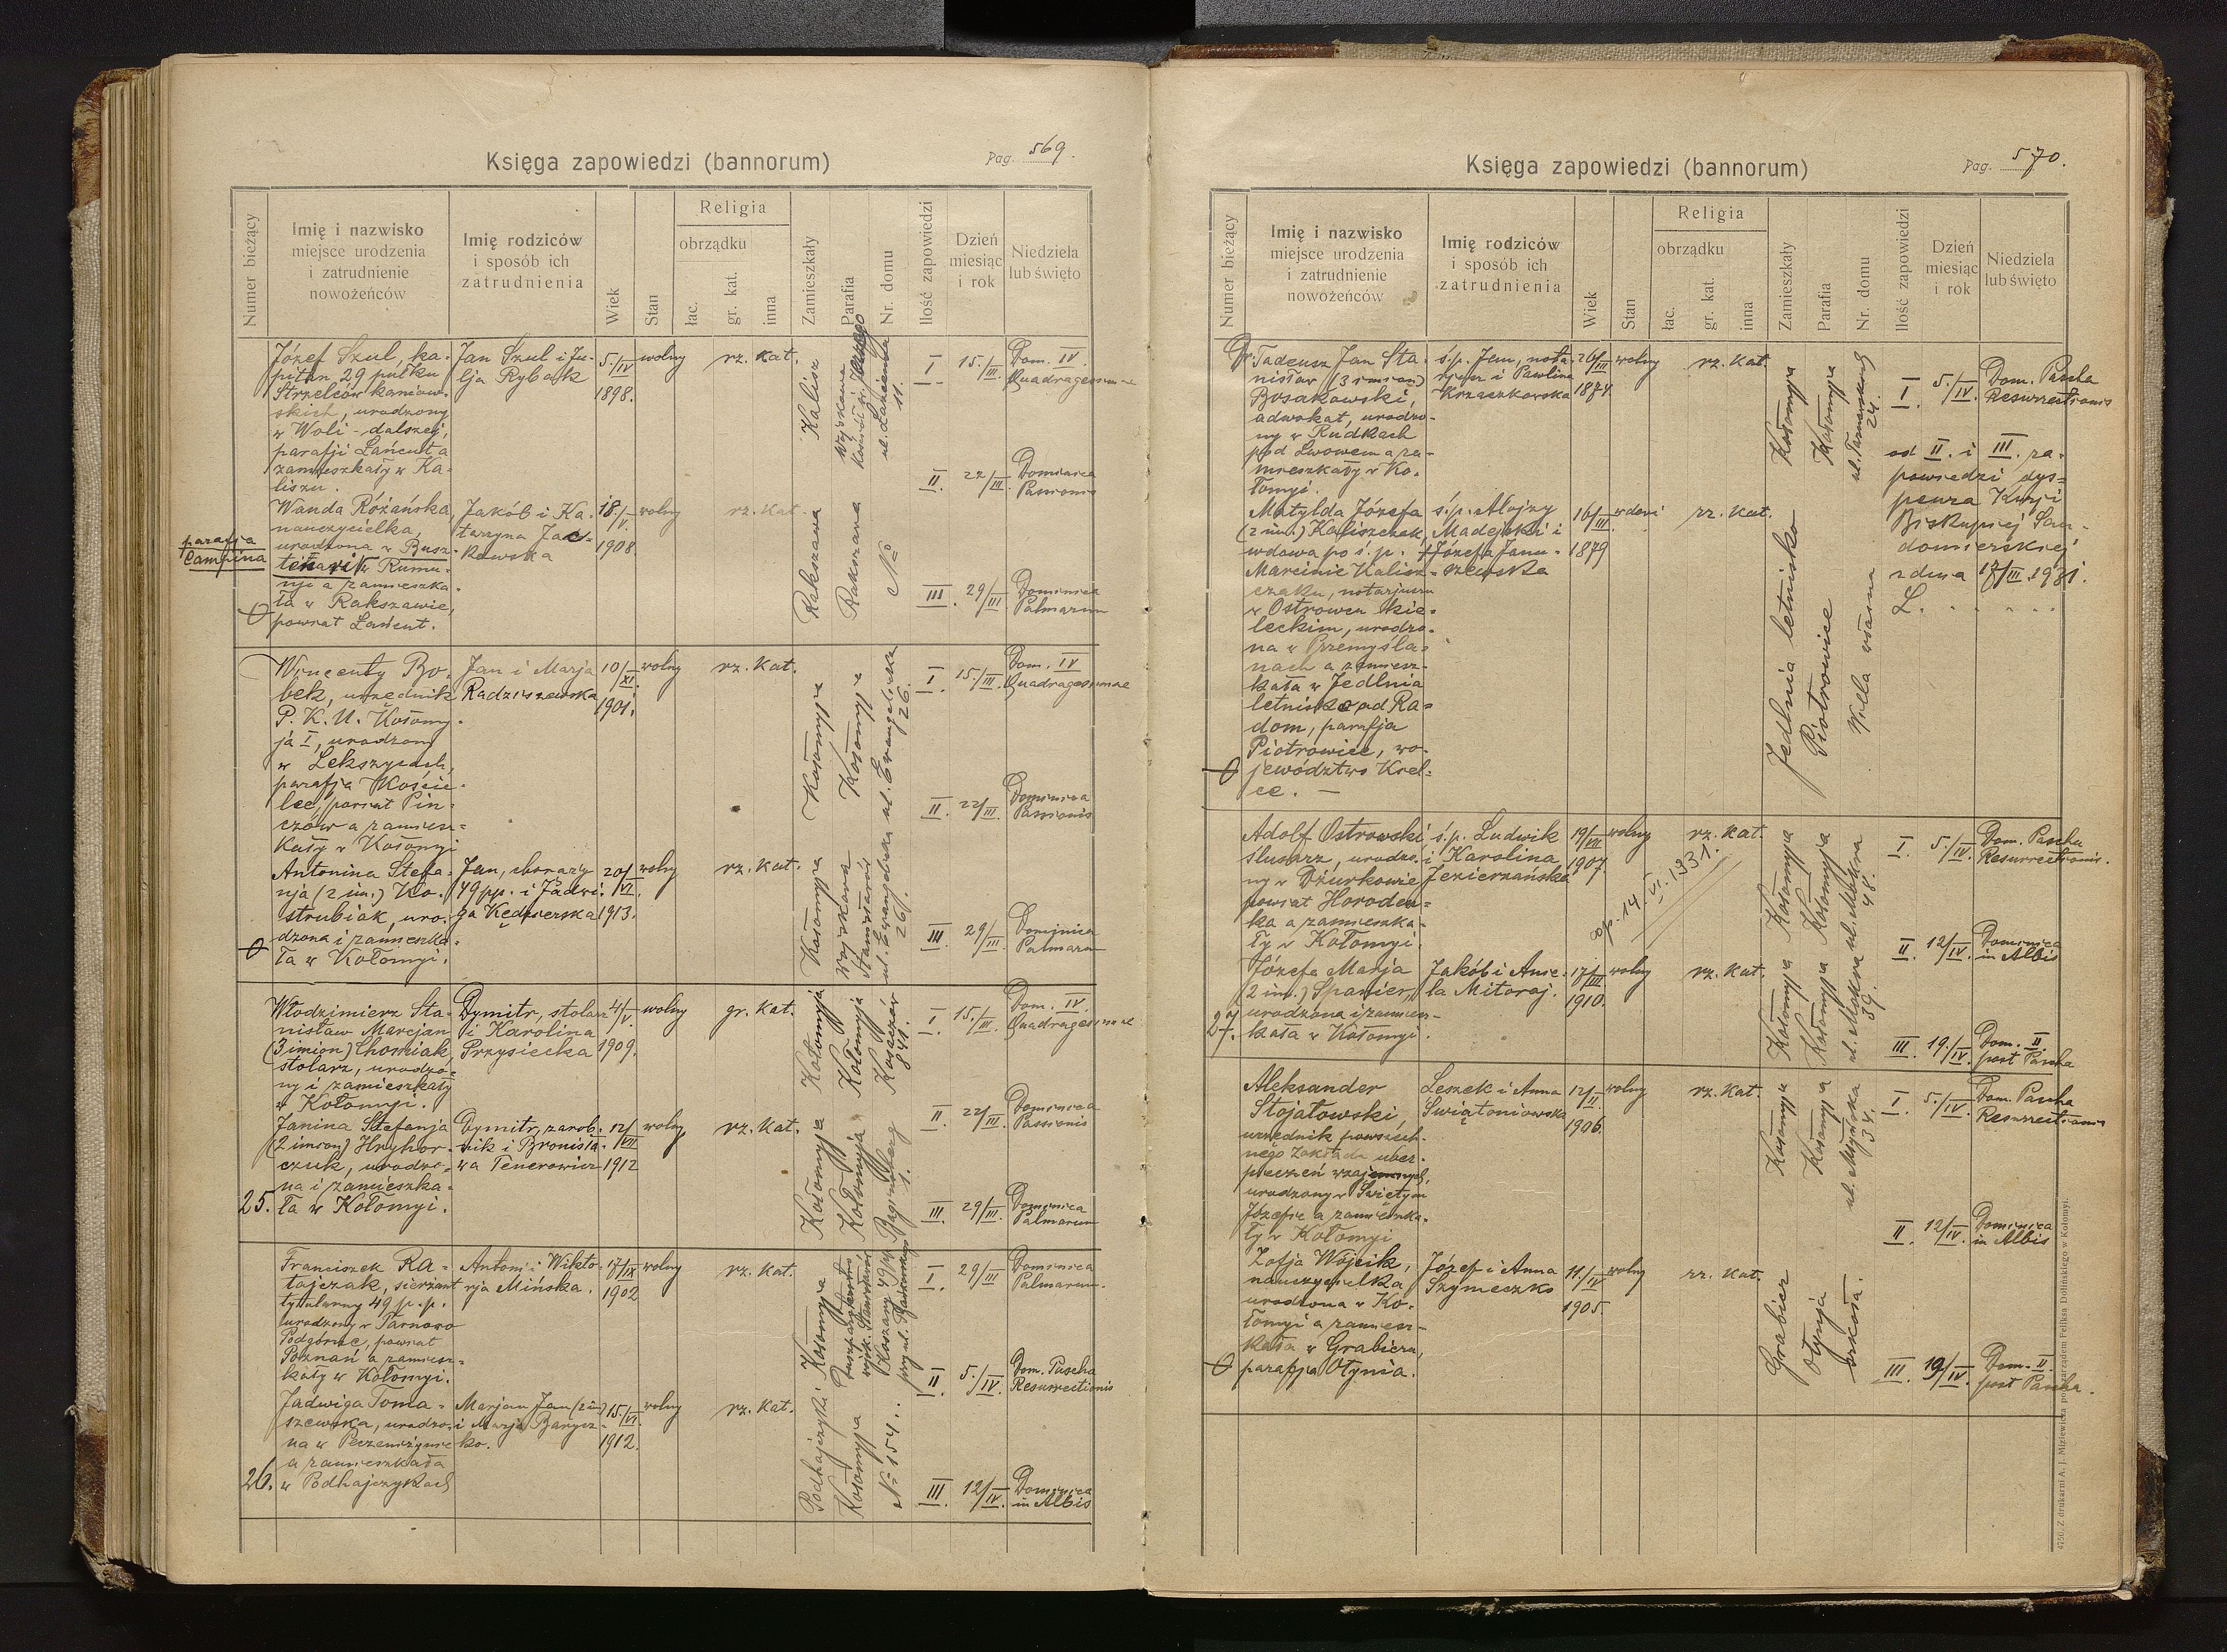 Księga zapowiedzi (bannorum)
Pag. 569.
Numer bieżący
Imię i nazwisko
miejsce urodzenia
i zatrudnienie
nowożeńców
Imię rodziców
i sposób ich
zatrudnienia
Wiek
Stan
Religia
obrządku
łac.
gr. kat.
inna
Zamieszkały
Parafia
Nr. domu
Ilość zapowiedzi
Dzień
miesiąc
i rok
Niedziela
lub święto
Józef Szul, ka-
pitan 29 pułku
Strzelców kaniow-
skich, urodzony
w Woli-dalszej,
parafji Łańcut a
zamieszkały w Ka-
liszu.
Jan Szul i Ju-
lja Rybak
5./IV
1898.
wolny
rz. kat.
Kalisz
Wojskowa
ul. Łazienna
11.
I 15./III. Dom. IV.
Quadragesimae
II. 22/III. Dominica
Passionis
III. 29/III Dominica
Palmarum
Wanda Różańska,
nauczycielka,
urodzona w Busz-
tenari w Rumu-
nji a zamieszka-
ła w Rakszawie,
powiat Łańcut.
parafja
Campina
Jakób i Ka-
tarzyna Jac-
kowska
18./V.
1908.
wolny
rz. kat.
Rakszawa
Rakszawa
No
Wincenty Bo-
bek, urzędnik
P. K. U. Kołomy-
ja I, urodzony
w Lekszycach,
parafja Koście-
lec, powiat Piń-
czów a zamiesz-
kały w Kołomyi
Jan i Marja
Radziszewska
10/XI.
1901.
wolny
rz. kat.
Kołomyja
Kołomyja
ul. Ewangelicka
26.
I. 15./III. Dom. IV
Quadragesimae
II. 22/III. Dominica
Passionis
III. 29/III. Dominica
Palmarum
Antonina Stefa-
nja (2 im.) Ko-
strubiak, uro-
dzona i zamieszka-
ła w Kołomyi.
Jan, chorąży
49 pp. i Jadwi-
ga Kędzierska
20/VI.
1913.
wolny
rz. kat.
Kołomyja
Wojskowa
Stanisławów
ul. Ewangelicka
26.
Włodzimierz Sta-
nisław Marcjan
(3 imion) Chomiak,
stolarz, urodzo-
ny i zamieszkały
w Kołomyi.
Dymitr, stolarz
i Karolina
Przysiecka
4/V.
1909.
wolny
gr. kat.
Kołomyja
Kołomyja
Koszczów
841.
I. 15./III. Dom. IV.
Quadragesimae
II. 22/III. Dominica
Passionis
III. 29/III. Dominica
Palmarum
Janina Stefanja
(2 imion) Hryhor-
czuk, urodzo-
na i zamieszka-
25. ła w Kołomyi.
Dymitr, zarob-
nik i Bronisła-
wa Tenerowicz
12/VII
1912
wolny
rz. kat.
Kołomyja
Kołomyja
Baginsberg
1.
Franciszek Ra-
tajczak, sierżant
tytularny 49 p. p.
urodzony w Tarnowo
Podgórne, powiat
Poznań a zamiesz-
kały w Kołomyi.
Antoni i Wikto-
rja Mińska.
17/IX
1902
wolny
rz. kat.
Kołomyja
Duszpasterstwo
wojsk. Stanisławów
Koszary 49 pp.
I. 29/III Dominica
Palmarum.
II. 5./IV. Dom. Pascha
Resurrectionis
III. 12/IV. Dominica
in Albis
Jadwiga Toma-
szewska, urodzo-
na w Peczeniżynie
a zamieszkała
26. w Podhajczykach
Marjan Jan (2 im)
i Marja Barycz-
ko.
15./VI.
1912.
wolny
rz. kat.
Podhajczyki
Kołomyja
No 154.
Księga zapowiedzi (bannorum)
Pag. 570.
Numer bieżący
Imię i nazwisko
miejsce urodzenia
i zatrudnienie
nowożeńców
Imię rodziców
i sposób ich
zatrudnienia
Wiek
Stan
Religia
obrządku
łac.
gr. kat.
inna
Zamieszkały
Parafia
Nr. domu
Ilość zapowiedzi
Dzień
miesiąc
i rok
Niedziela
lub święto
Dr. Tadeusz Jan Sta-
nisław (3 imion)
Bosakowski,
adwokat, urodzo-
ny w Rudkach
pod Lwowem a za-
mieszkały w Ko-
łomyi.
ś.p. Jan, nota-
rjusz i Paulina
Krzaczkowska
26/III
1874.
wolny
rz. kat.
Kołomyja
Kołomyja
24.
I. 5./IV. Dom. Pascha
Resurrectionis
od II. i III. za-
powiedzi dys-
penza Kurji
Biskupiej San-
domierskiej
z dnia 17/III. 1931.
L. . . . . .
Matylda Józefa
(2 im.) Kaliszczak,
wdowa po ś. p.
Marcinie Kalisz-
czaku, notarjuszu
w Ostrowcu kie-
leckim, urodzo-
na w Przemyśla-
nach a zamiesz-
kała w Jedlnia
letnisko ad Ra-
dom, parafja
Piotrowice, wo-
jewództwo Kiel-
ce. —
ś.p. Alojzy
Madejski i
Józefa Janu-
szewska
16/III
1879
rz. kat.
Jedlnia letnisko
Piotrowice
Willa własna
Adolf Ostrowski
ślusarz, urodzo-
ny w Dżurkowie
powiat Horoden-
ka a zamieszka-
ły w Kołomyi.
ś.p. Ludwik
i Karolina
Jezierzańska
19/VII
1907.
wolny
rz. kat.
14. VI. 1931.
Kołomyja
Kołomyja
ul. Mokra
48.
I. 5./IV. Dom. Pascha
Resurrectionis.
II. 12/IV. Dominica
in Albis
III. 19./IV. Dom. II
post Pascha
Józefa Marja
(2 im.) Spanier,
urodzona i zamiesz-
27. kała w Kołomyi.
Jakób i Anie-
la Mitoraj.
17/III
1910.
wolny
rz. kat.
Kołomyja
Kołomyja
ul. Mokra
39.
Aleksander
Stojałowski,
urzędnik powszech-
nego Zakładu ubez-
pieczeń wzajemnych,
urodzony w Świętym
Józefie a zamieszka-
ły w Kołomyi
Leszek i Anna
Świątoniowska
12/II.
1906.
wolny
rz. kat.
Kołomyja
Kołomyja
ul. Młyńska
34.
I. 5./IV. Dom. Pascha
Resurrectionis
II. 12/IV. Dominica
in Albis
III. 19/IV. Dom. II.
post Pascha.
Zofja Wójcik,
nauczycielka
urodzona w Ko-
łomyi a zamiesz-
kała w Grabiczu,
parafja Otynia.
Józef i Anna
Szymeczko
11./IV
1905.
wolny
rz. kat.
Grabicz
Otynja
szkoła.
4750. Z drukarni A. J. Miziewicza pod zarządem Feliksa Dolińskiego w Kołomyi.